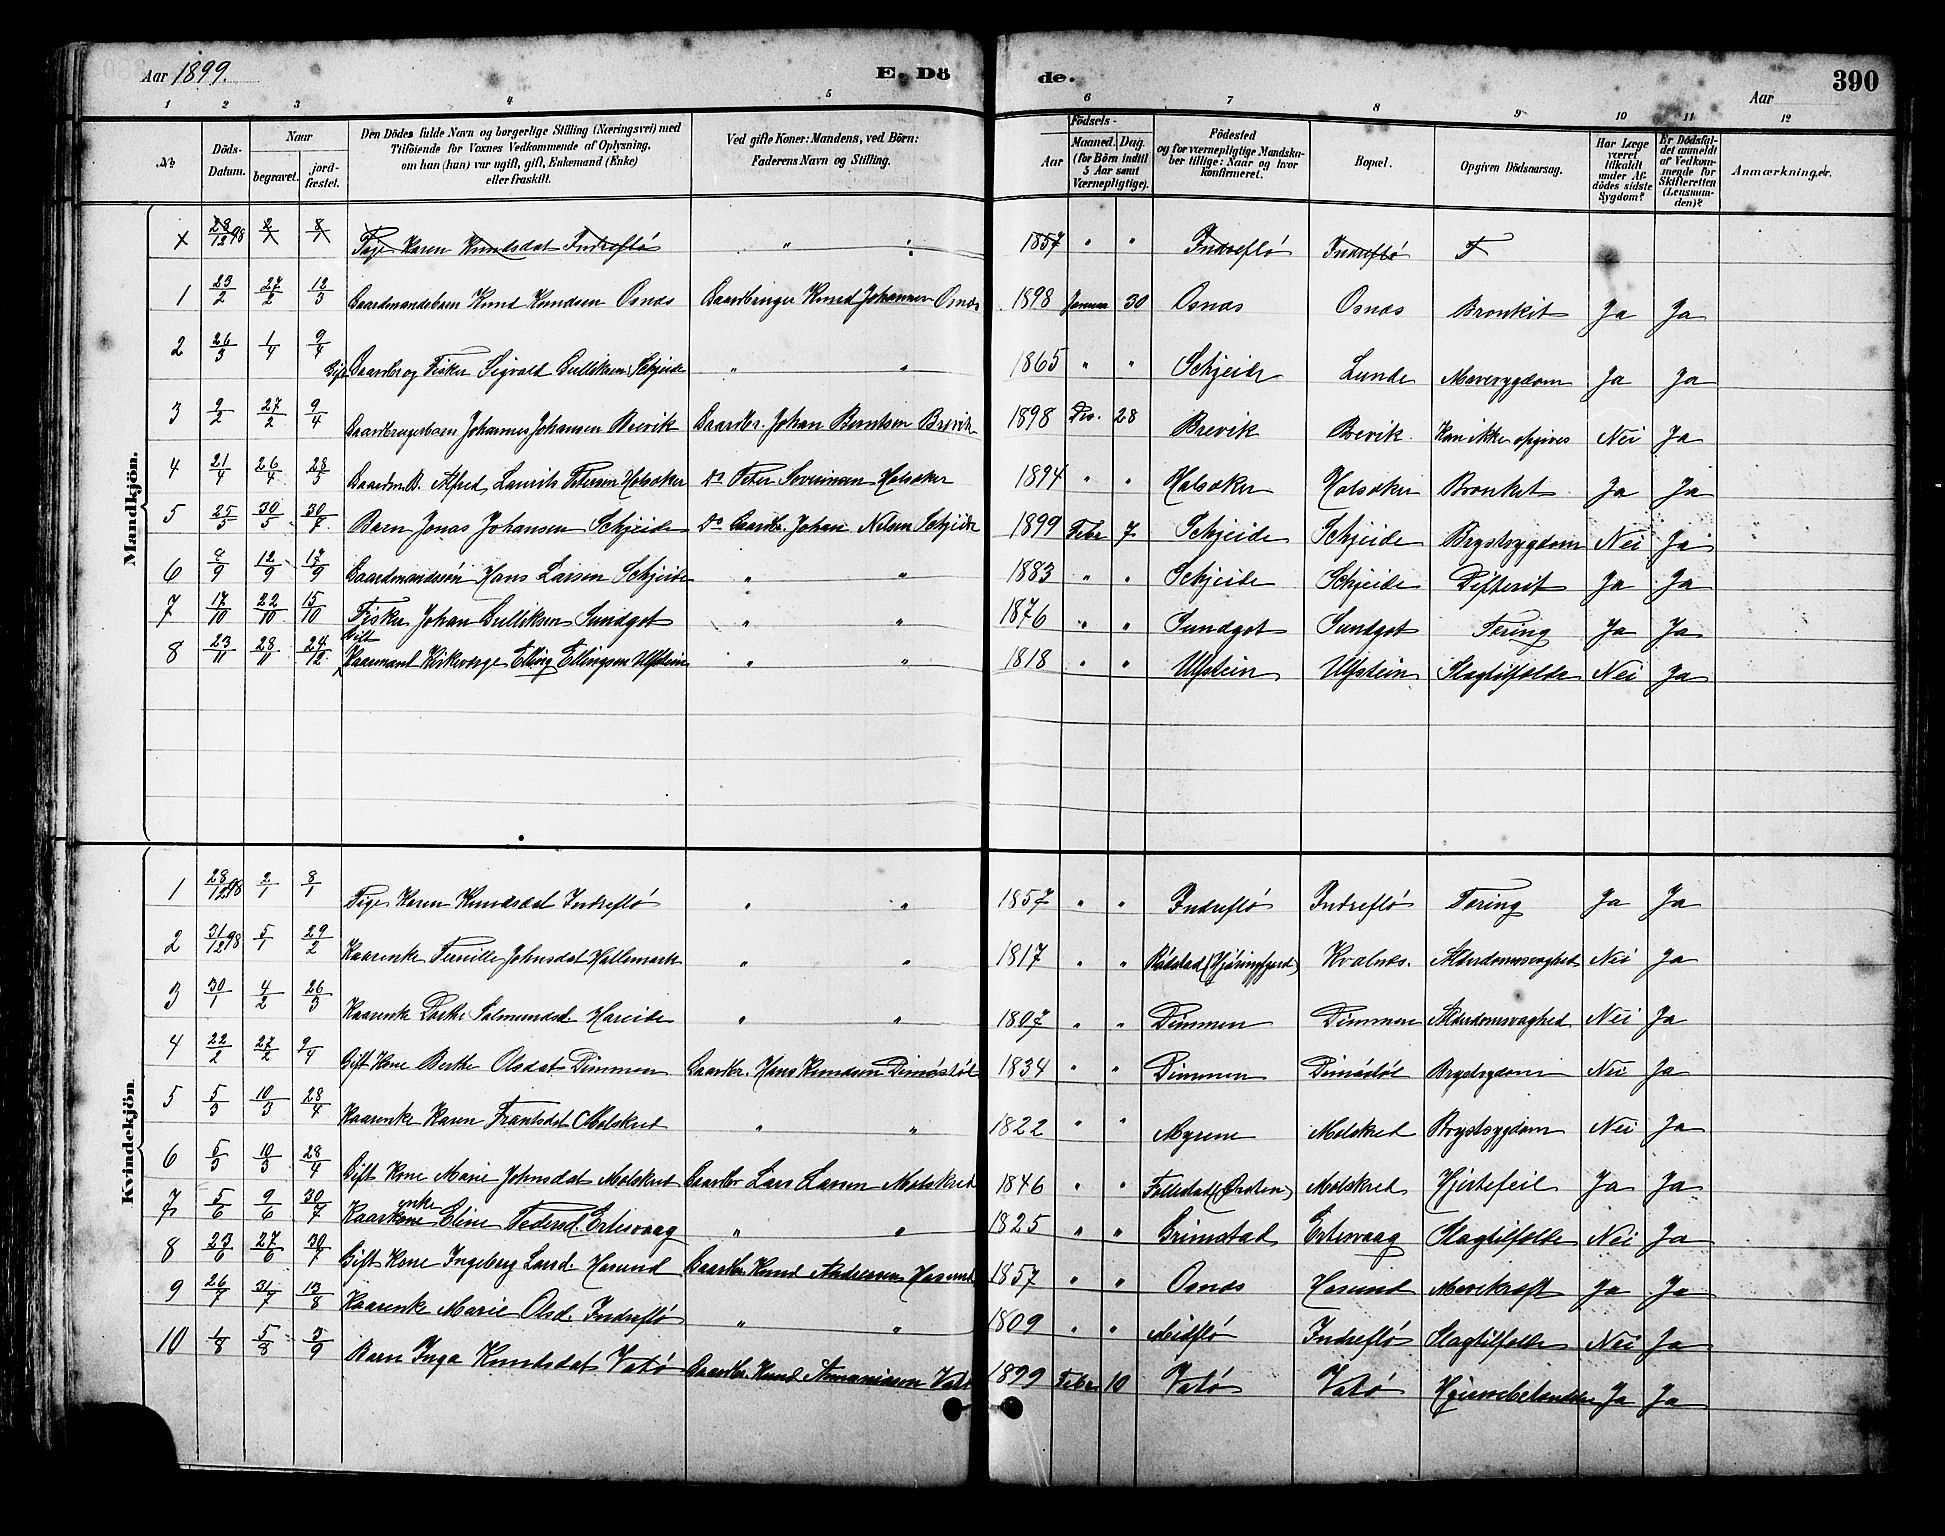 Aar 1899.
E. Dö
de.
Aar
390
1 2 3 4 5 6 7 8 9 10 11 12
No
Döds-Datum.
Naar
begravet.
jord-fæstet.
Den Dödes fulde Navn og borgerlige Stilling (Næringsvei) med
Tilföiende for Voxnes Vedkommende af Oplysning,
om han (hun) var ugift, gift, Enkemand (Enke)
eller fraskilt.
Ved gifte Koner: Mandens, ved Börn:
Faderens Navn og Stilling.
Födsels-
Aar
Maaned. Dag.
(for Börn indtil
5 Aar samt
Værnepligtige).
Födested
og for værnepligtige Mandska-
ber tillige: Naar og hvor
konfirmeret.
Bopæl.
Opgiven Dödsaarsag.
Har Læge
været
tilkaldt
under Af-
dödes sidste
Sygdom?
Er Dödsfal-
det anmeldt
af Vedkom-
mende for
Skifteretten
(Lensman-
den)?
Anmærkninger.
Mandkjön.
x 28/12 98 2/1 8/1 Pige Karen Knudsdat Indreflö " " 1857 " " Indreflö Indreflö T
1 23/2 27/2 12/3 Gaardmandsbarn Knud Knudsen Osnæs Gaardbruger Knud Johannsen Osnæs 1898 Januar 30 Osnæs Osnæs Bronkit Ja Ja
2 26/3 1/4 9/4 Gift Gaardbr og Fisker Sigvald Gulliksen Schjeide " " 1865 " " Schjeide Lunde Mavesygdom Ja Ja
3 9/2 27/2 9/4 Gaardbrugerbarn Johannes Johansen Brevik Gaardbr. Johan Berntsen Brevik 1898 Des. 28 Brevik Brevik. Kan ikke opgives Nei Ja
4 21/4 26/4 28/5 Gaardm.B. Alfred Laurits Petersen Holsæker Do Peter Severinsen Holsæker 1894 " " Holsæker Holsæker Bronkit Ja Ja
5 25/5 30/5 30/7 Barn Jonas Johansen Schjeide Do Gaardb. Johan Nilsen Schjeide 1899 Febr 7 Schjeide Schjeide Brystsygdom Nei Ja
6 8/9 12/9 17/9 Gaardmandssön Hans Larsen Schjeide " " 1883 " " Schjeide Schjeide Difterit Ja Ja
7 17/10 22/10 15/10 Fisker Johan Gulliksen Sundgot " " 1876 " " Sundgot Sundgot Tæring Ja Ja
8 23/11 28/11 24/12 Gift Kaarmand Kirkeværge Elling Ellingsen Ulfstein " " 1818 " " Ulfstein Ulfstein Slagtilfælde Nei Ja
Kvindekjön
1 28/12 98 2/1 8/1 Pige Karen Knudsdat Indreflö " " 1857 " " Indreflö Indreflö Tæring Ja Ja
2 31/12 98 5/1 29/2 Kaarenke Pernille Johnsdat Hallemark " " 1817 " " Kvalnæs. Alderdomssvaghed Nei Ja
3 30/1 4/2 26/3 Kaarenk Dorthe Salmundsd. Hareide " " 1807 " " Dimmen Dimmen Alderdomsvaghed Nei Ja
4 22/2 27/2 9/4 Gift Kone Berthe Olsdat Dimmen Gaardbr. Hans Knudsen Dimöstöl 1834 " " Dimmen Dimöstöl Brystsygdom Nei Ja
5 5/3 10/3 28/4 Kaarenke Karen Frantsdat Molskred " " 1822 " " Myrene Molskred Brystsygdom Nei Ja
6 5/3 10/3 28/4 Gift Kone Marie Johnsdat Molskred Gaardbr Lars Larsen Molskred 1846 " " Follestad (Örsten) Molskred Hjertefeil Ja Ja
7 5/6 9/6 30/7 Kaarkone enke Eline Pedersd. Ertesvaag " " 1825 " " Grimstad Ertesvaag Slagtilfælde Nei Ja
8 23/6 27/6 30/7 Gift Kone Ingeborg Larsd. Hasund Gaardbr. Knud Andreasen Hasund 1857 " " Osnæs Hasund Mavekræft Ja Ja
9 26/7 31/7 13/8 Kaarenke Marie Olsd. Indreflö " " 1809 " " Midflö Indreflö Slagtilfælde Nei Ja
10 1/8 5/8 3/9 Barn Inga Knutsdat Vatö Gaardbr. Knud Amandsen Vatö 1899 Febr 10 Vatö Vatö Hjernebetændelse Ja Ja